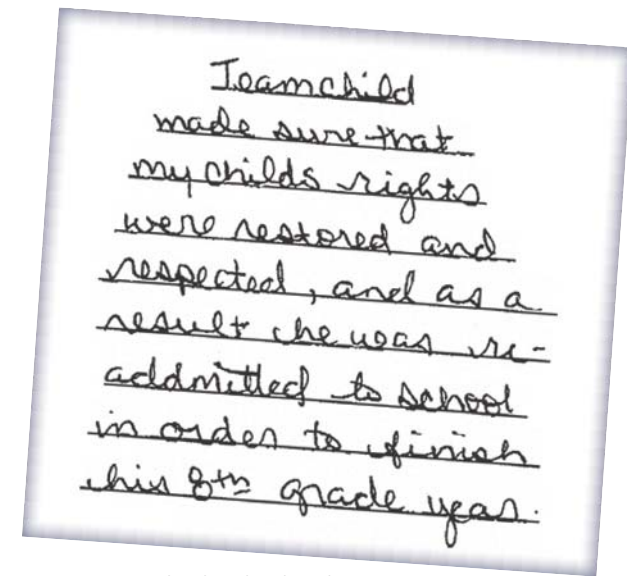 Teamchild
made sure that
my childs rights
were restored and
respected, and as a
result he was re-
addmitted to school
in order to finish
his 8th grade year.